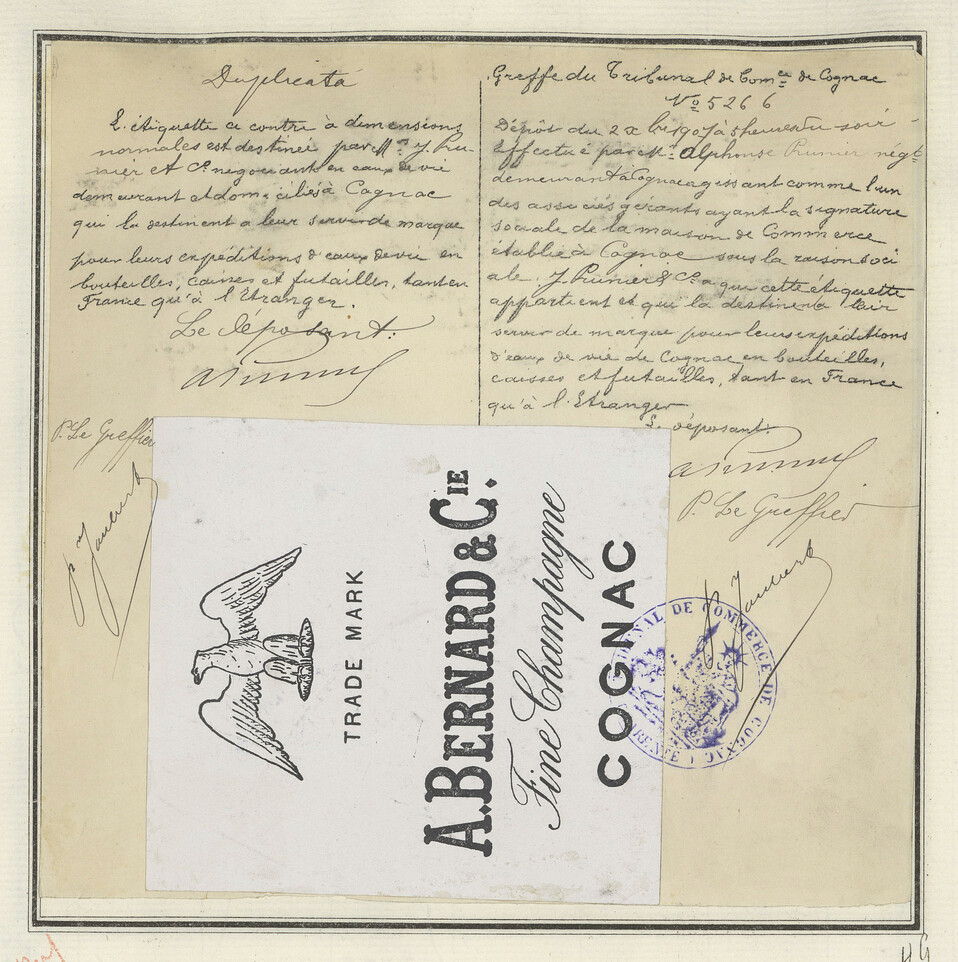 Duplicata
L'étiquette ci contre à dimensions
normales est destiner par MM J. Pru-
nier et Cie negociants en eaux de vie
demeurant et domiciliés à Cognac
qui la destinent a leur servir de marque
pour leurs expéditions d'eaux de vie en
bouteilles, caisses et futailles, tant en
France qu'à l'Etranger.
Le déposant.
P. Le Greffier
Greffe du Tribunal de Comce de Cognac
No 5266
Dépôt du 2 à 5 heures du soir
Effectué par Mr Alphonse Prunier négt
demeurant à Cognac agissant comme l'un
des associés gérants ayant la signature
sociale de la maison de Commerce
établie à Cognac sous la raison soci
ale J. Prunier & Co a qui cette étiquette
appartient et qui la destine à leur
servir de marque pour leurs expéditions
d'eaux de vie de Cognac en bouteilles,
caisses et futailles, tant en France
qu'à l'Etranger
Le déposant.
P. Le Greffier
TRADE MARK
A. BERNARD & CIE.
Fine Champagne
COGNAC
DE COMMERCE DE COGNAC